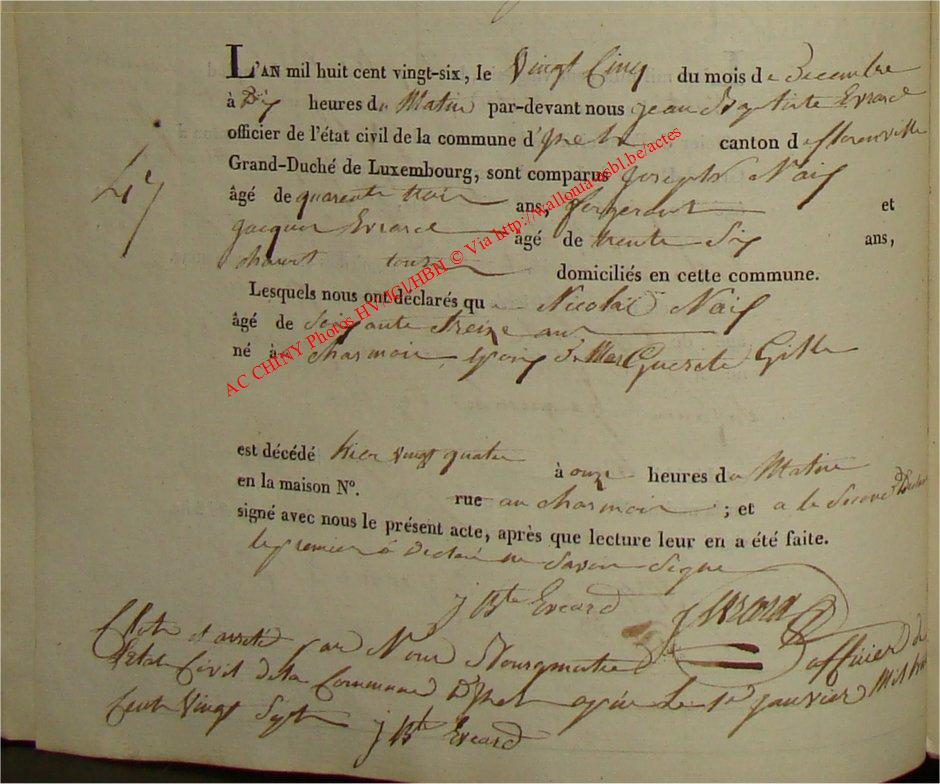 L'AN mil huit cent vingt-six, le Vingt Cinq du mois de Decembre
à Dix heures du Matin par-devant nous jean Baptiste Evrard
officier de l'état civil de la commune d' canton de florenville
Grand-Duché de Luxembourg, sont comparus joseph Naif
47
âgé de quarente trois ans, forgeront et
jacques Evrard âgé de trente Six ans,
domiciliés en cette commune.
Lesquels nous ont déclarés que Nicolai Naif
âgé de Soixante treize ans
né à charmoir Epoux de Marguerete Gille
est décédé hier vingt quatre à onze heures du Matin
en la maison N°. rue au charmoir ; et a le Second Declar
signé avec nous le présent acte, après que lecture leur en a été faite.
le premier à Declaré ne Savoir Signe
j Bte Evrard j Evrard
Clote et arreté par Nous Bourgmestre officier de
l'état Civil de la Commune le 1er janvier Mil huit
Cent Vingt Sept j Bte Evrard
AC CHINY Photos HV/JGI/HBN © Via http://wallonia-asbl.be/actes